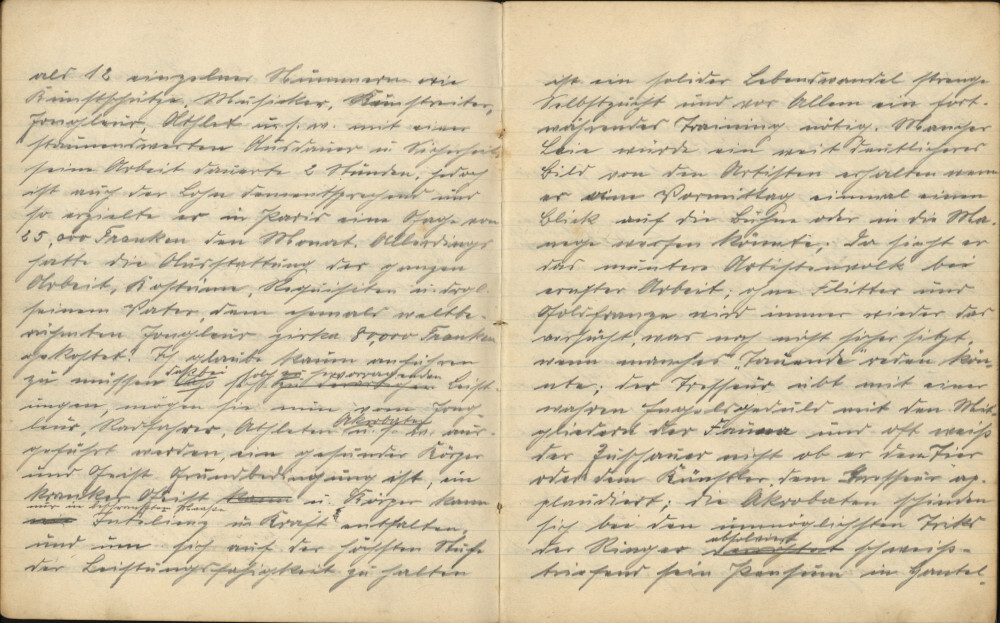 als 12 einzelner Nummern wie
Kunstschütze, Musicker, Kunstreiter,
Jongleur, Athlet u.s.w. mit einer
staunenswerten Ausdauer u Sicherheit
seine Arbeit dauerte 2 Stunden, jedoch
ist auch der Lohn dementsprechend und
so erzielte er in Paris eine Gage von
25,000 Franken den Monat. Allerdings
hatte die Ausstattung der ganzen
Arbeit, Kostüme, Requisiten u. drgl.
seinem Vater, dem ehemals weltbe-
rühmten Jongleur zirka 80,000 Franken
gekostet. Ich glaube kaum anführen
daß bei solch hervorragenden
zu müssen zu Leist-
ungen, mögen sie nun vom Jong-
Akrobaten
leur, Radfahrer, Athleten u.s.w. aus-
geführt werden, ein gesunder Körper
und Geist Grundbedingung ist, im
kranker Geist kann u. Körper kann
nur in beschränktem Maase
nur Inteligenz u Kraft entfalten,
und um sich auf der höchsten Stufe
der Leistungsfähigkeit zu halten
ist ein solider Lebenswandel strenge
Selbstzucht und vor Allem ein fort-
währendes Training nötig. Mancher
Laie würde ein weit deutlicheres
Bild von den Artisten erhalten wenn
er am Vormittag einmal einen
Blick auf die Bühne oder in die Ma-
nege werfen könnte; da sieht er
das muntere Artistenvolk bei
ernster Arbeit; ohne Flitter und
Goldfranze wird immer wieder das
versucht, was noch nicht sicher sitzt,
wenn manches "Tausende" reden kön-
nte; der Dresseur übt mit einer
wahren Engelsgeduld mit den Mit-
gliedern der Fauna und oft weiß
der Zuschauer nicht ob er dem Tier
oder dem Künstler, dem Dresseur ap-
plaudiert; die Akrobaten schinden
sich bei den unmöglichsten Triks
absolviert
der Ringer schweiß-
triefend sein Pensum in Hantel-